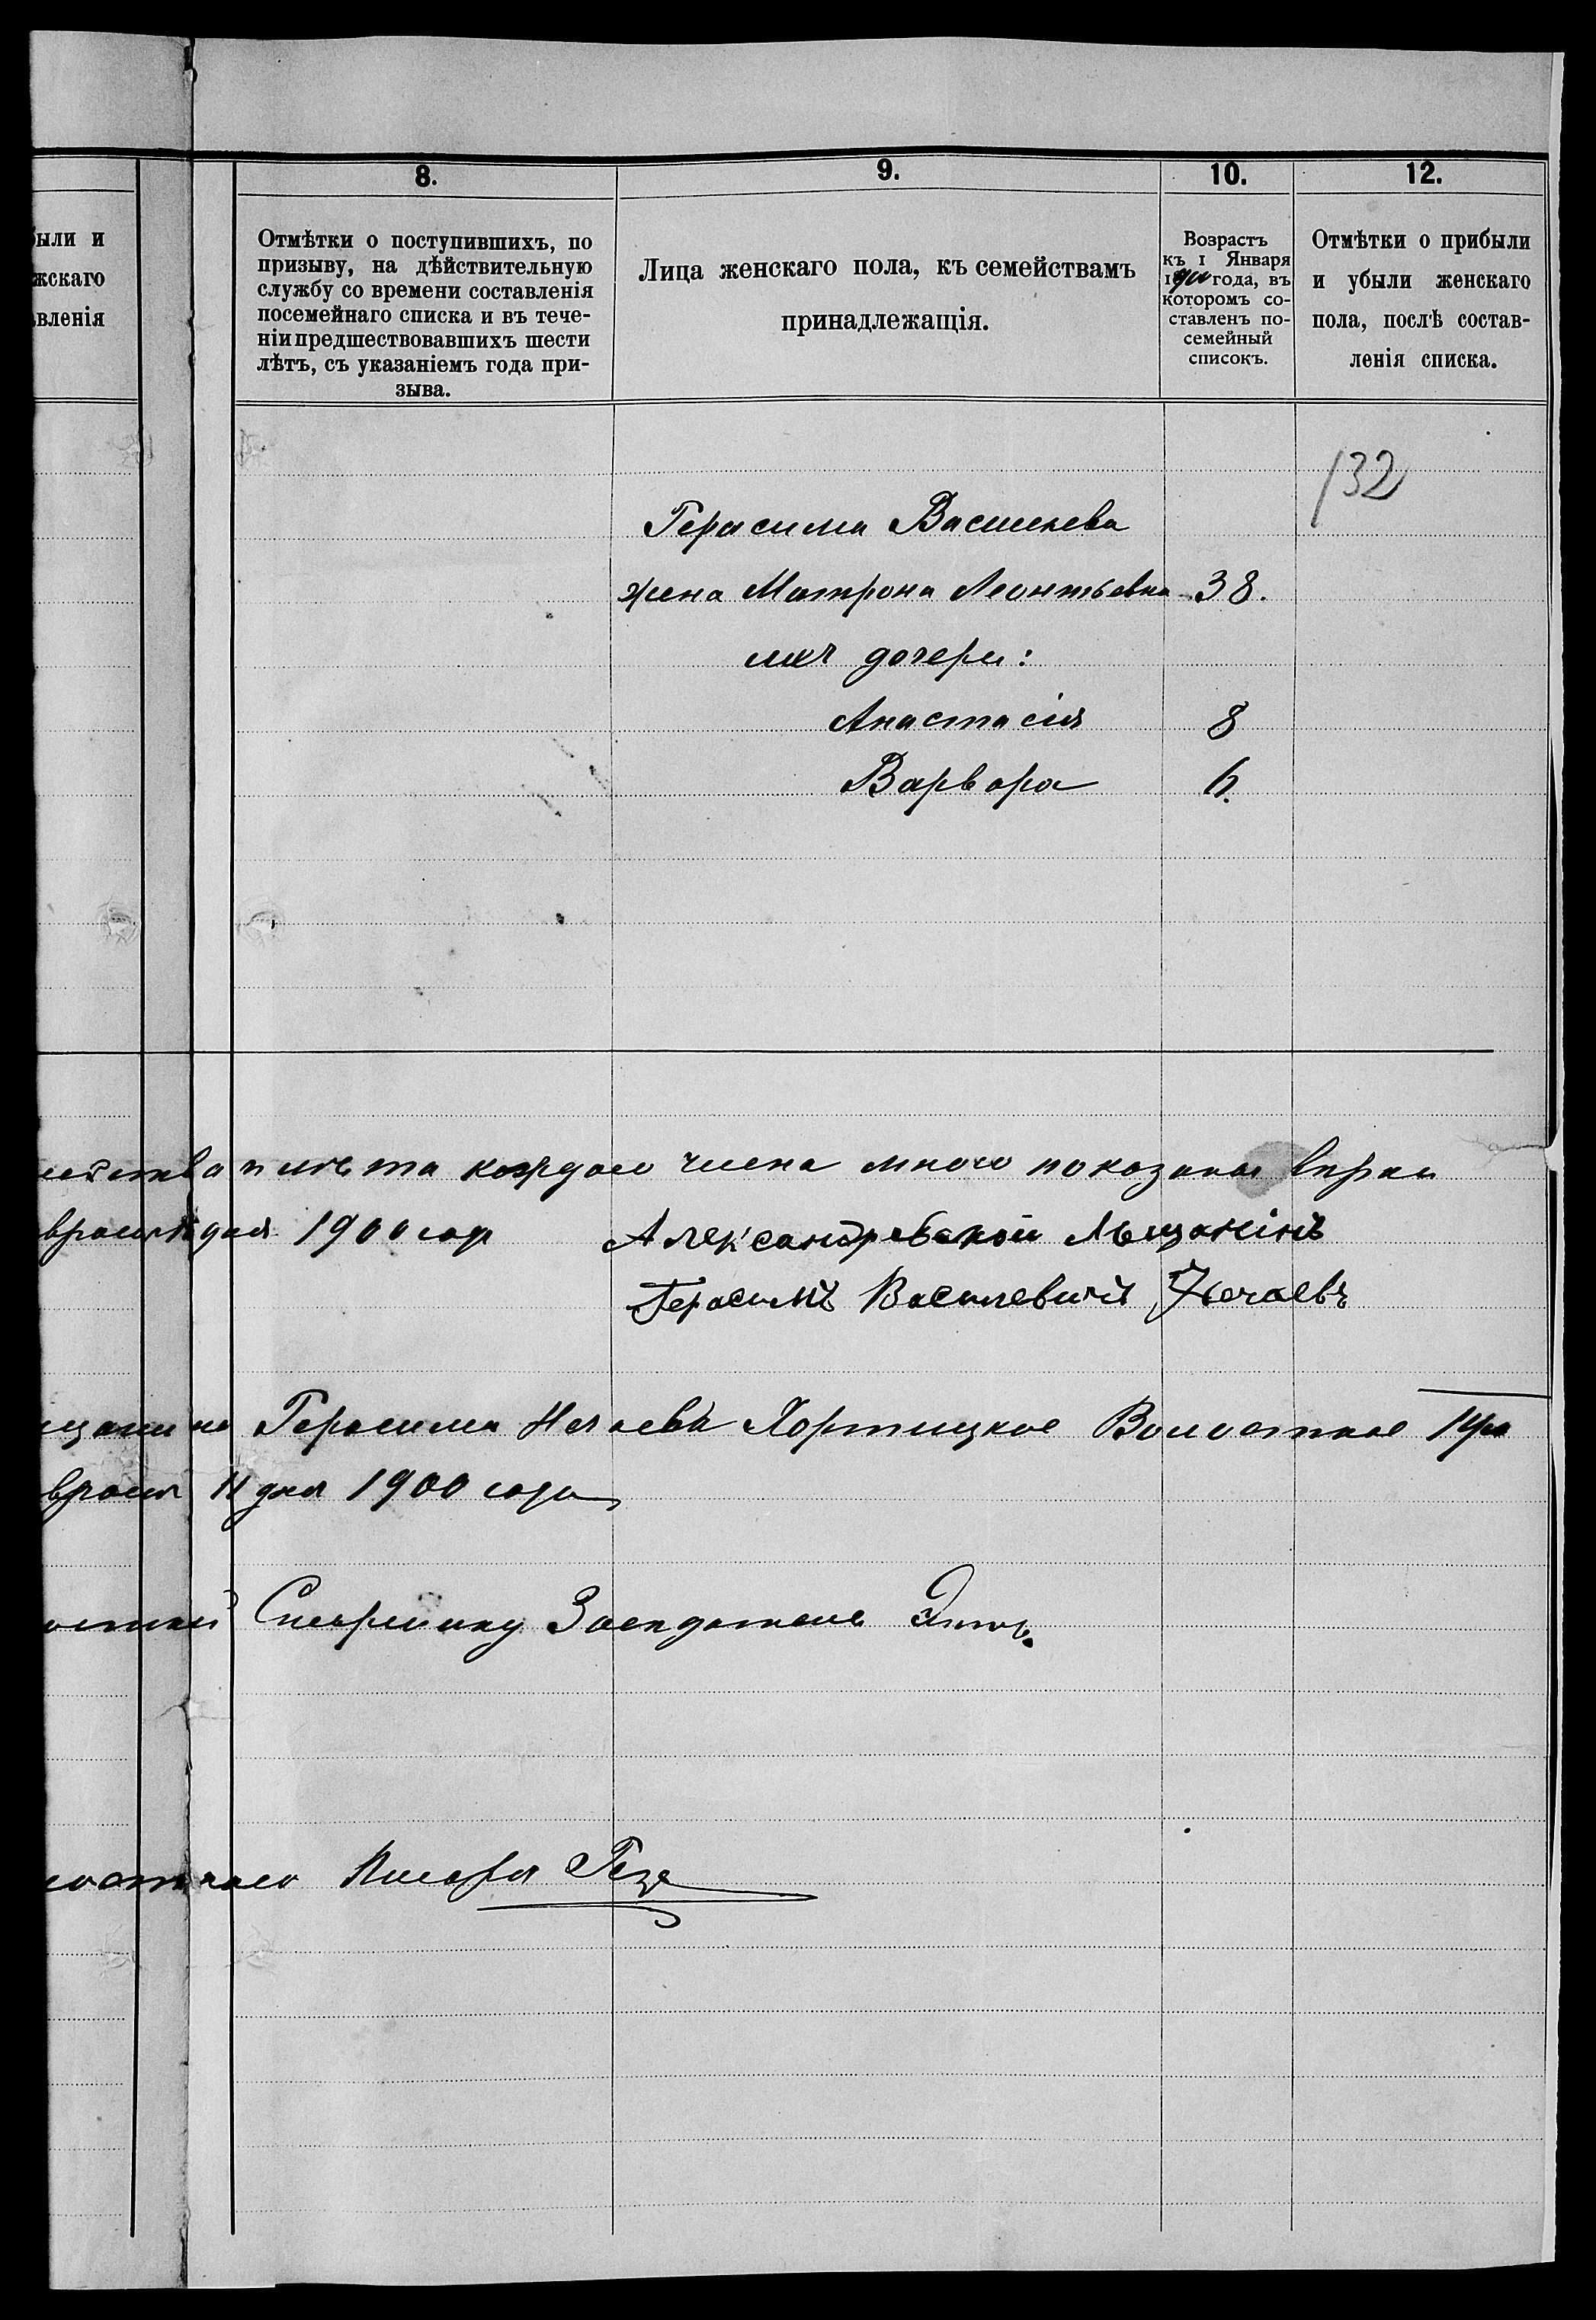 8.
9.
10.
12.
были и
жскаго
вленія
Отмѣтки о поступившихъ, по
призыву, на дѣйствительную
службу со времени составленія
посемейнаго списка и въ тече-
ніи предшествовавшихъ шести
лѣтъ, съ указаніемъ года при-
зыва.
Лица женскаго пола, къ семействамъ
принадлежащія.
Возрастъ
къ 1 Января
1900 года, въ
которомъ со-
ставленъ по-
семейный
списокъ.
Отмѣтки о прибыли
и убыли женскаго
пола, послѣ состав-
ленія списка.
132
Герасима Василева
жена Матрона Леонтьевна 38.
ихъ дочери:
Анастасія 8
Варвара 6.
лѣта каждаго члена мною показаны
враля дня 1900 года Александревской Мещанінъ
Герасимъ Василевичъ Нечаевъ
щанина Герасима Нечаева Хортицкое Волостное Пра
враля 11 дня 1900 года
остной Старшину Засѣдатель
лостнаго Писаря